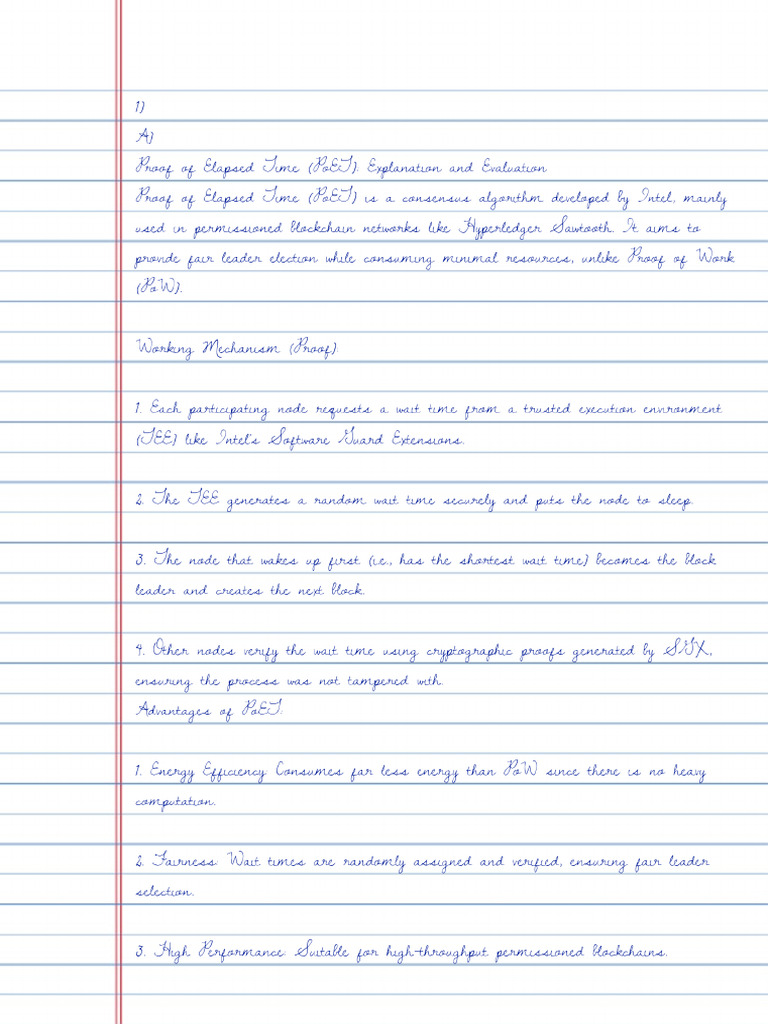 1)
A)
Proof of Elapsed Time (PoET): Explanation and Evaluation
Proof of Elapsed Time (PoET) is a consensus algorithm developed by Intel, mainly
used in permissioned blockchain networks like Hyperledger Sawtooth. It aims to
provide fair leader election while consuming minimal resources, unlike Proof of Work
(PoW).
Working Mechanism (Proof):
1. Each participating node requests a wait time from a trusted execution environment
(TEE) like Intel's Software Guard Extensions.
2. The TEE generates a random wait time securely and puts the node to sleep.
3. The node that wakes up first (i.e., has the shortest wait time) becomes the block
leader and creates the next block.
4. Other nodes verify the wait time using cryptographic proofs generated by SGX,
ensuring the process was not tampered with.
Advantages of PoET:
1. Energy Efficiency: Consumes far less energy than PoW since there is no heavy
computation.
2. Fairness: Wait times are randomly assigned and verified, ensuring fair leader
selection.
3. High Performance: Suitable for high-throughput permissioned blockchains.